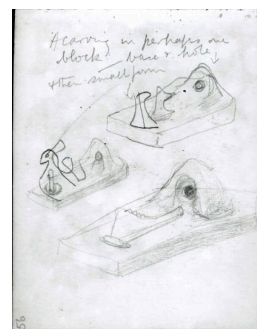 A carving in perhaps one
block. base + hole
+ then small form
56